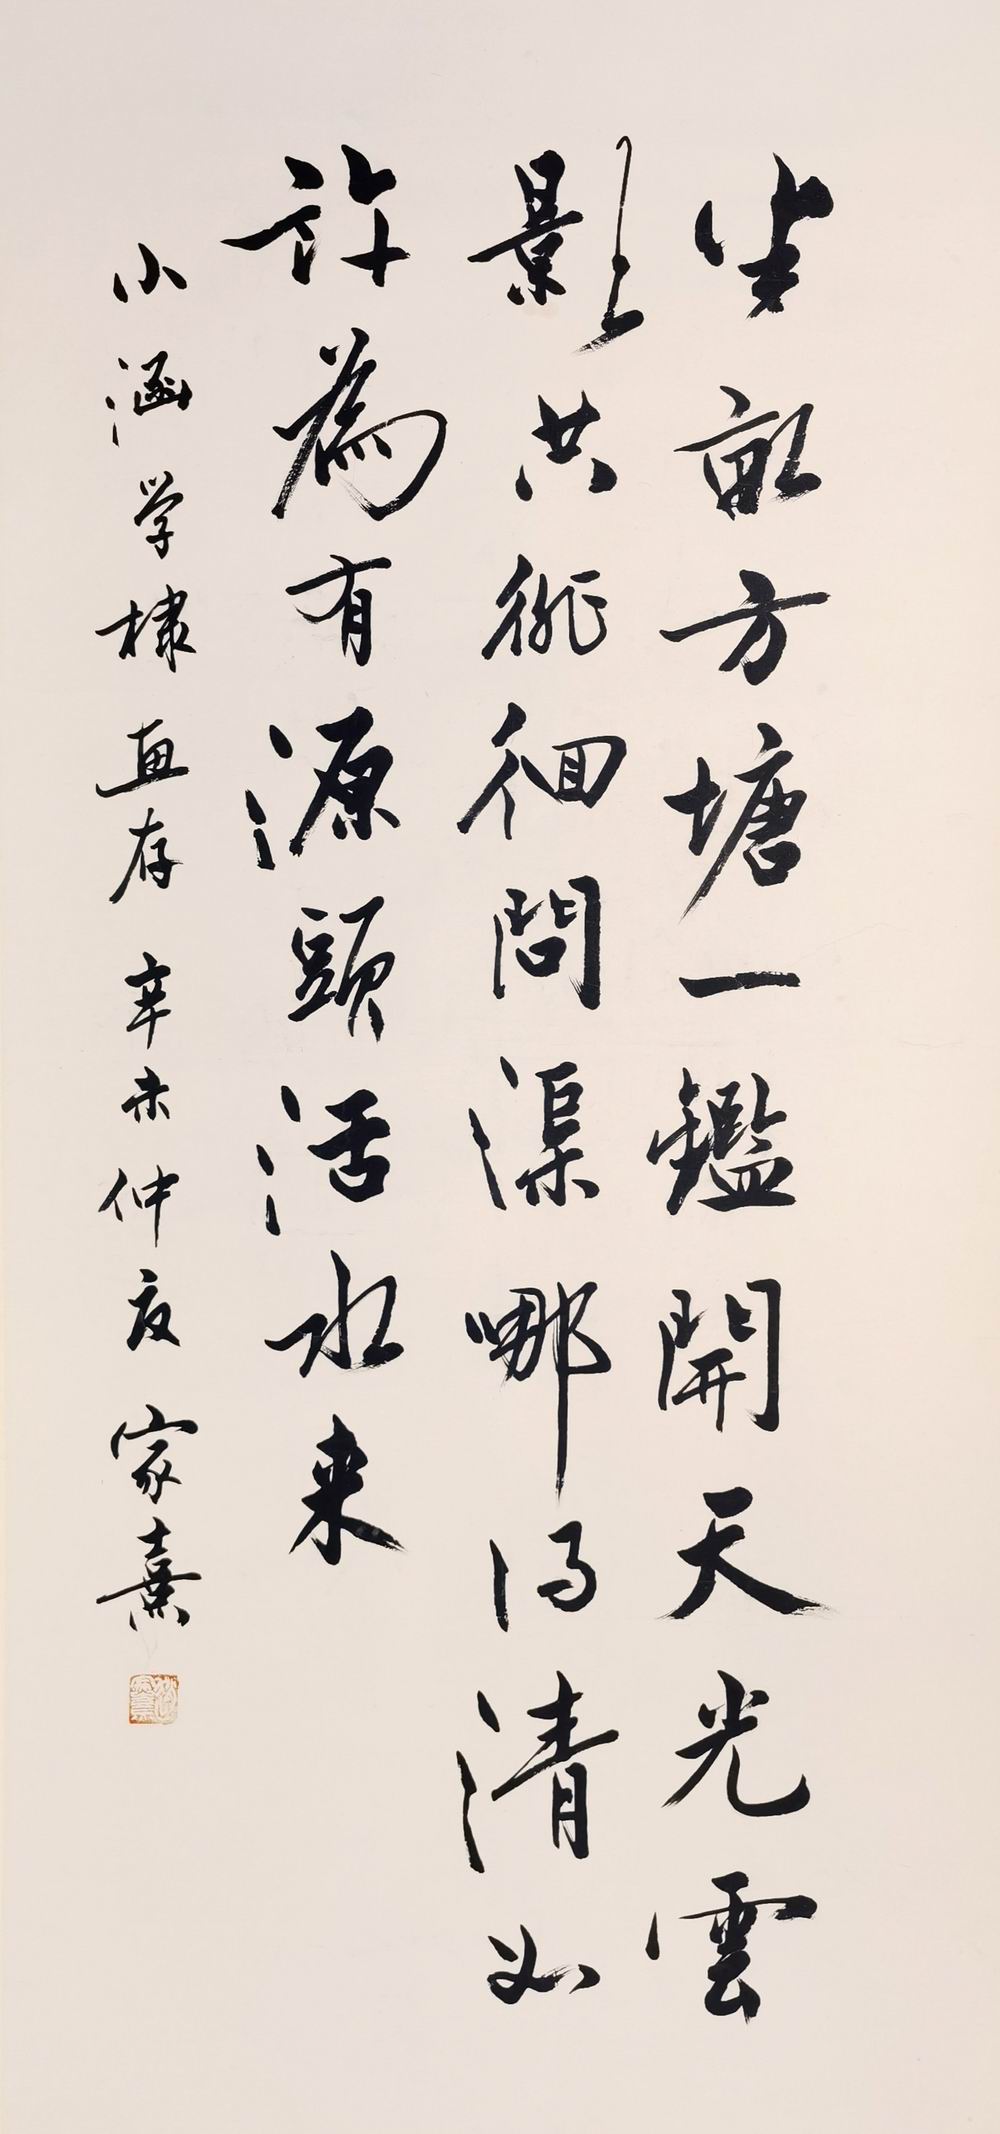 半畝方塘一鑑開天光雲
影共徘徊問渠哪得清如
許為有源頭活水来
小涵学棣画存 辛未仲夏 家熹